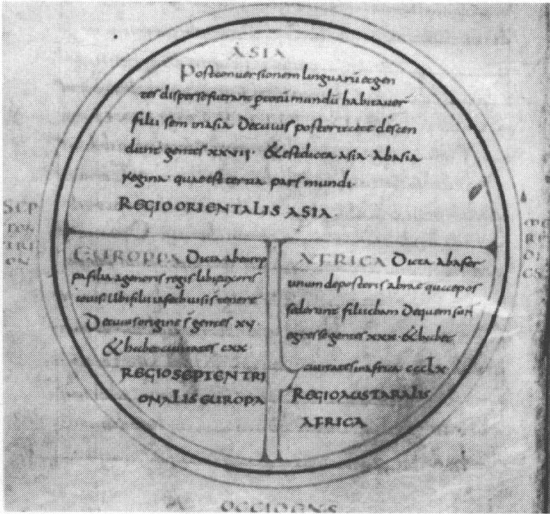 ASIA
Post conversionem linguarū et gen
tes disperse fuerant p totū mundū habitaver
filii sem in asia De cuius posteritate descen
dunt gentes xxvii · & est dicta asia ab asia
regina quae est tertia pars mundi
REGIO ORIENTALIS ASIA
SEP
TEN
TRI
O
EUROPPA Dicta ab europ
pa filia agenoris regis libie
iovis ubi filii iafeth visi
De cuius origine s̄ gentes xv ·
& habet civitates cxx
REGIO SEPTENTRI
ONALIS EUROPA
AFRICA Dicta ab afer
unum de posteris abrae
sederunt filii cham De quem
gentes xxx · & habet
civitates in africa ccclx
REGIO AUSTARALIS
AFRICA
OCCIDENS